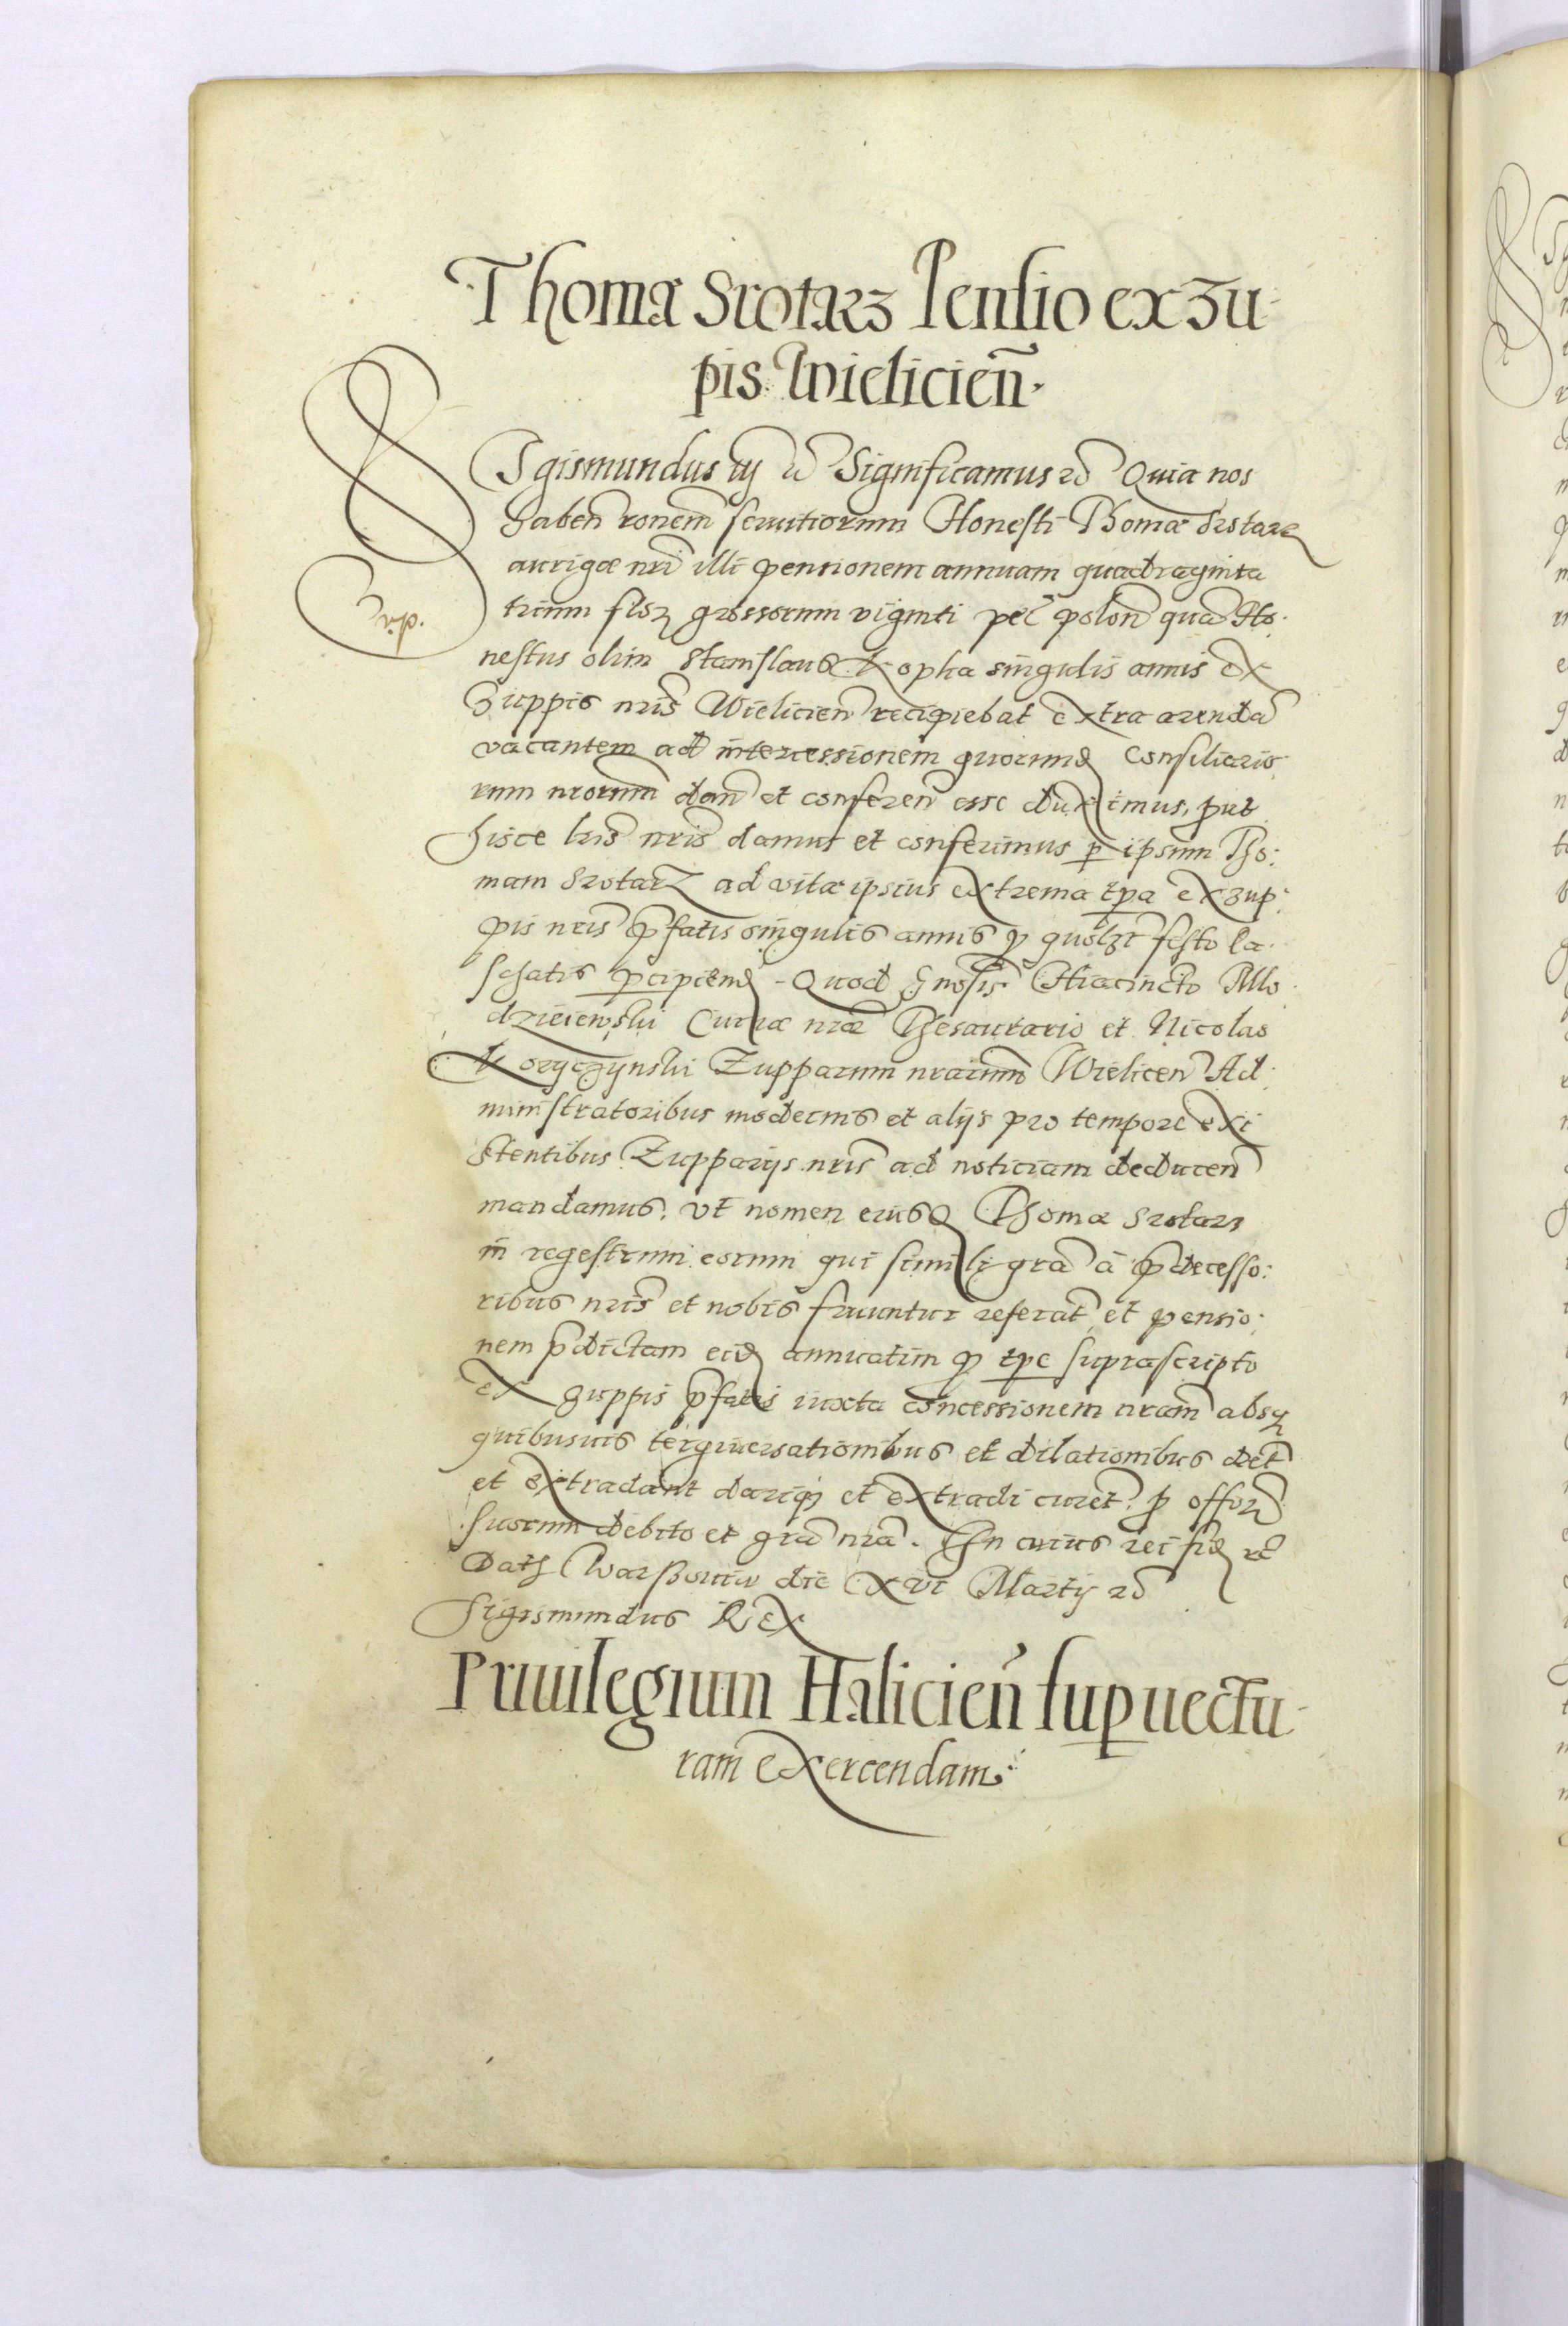 Thomæ Srotarz Pensio ex zu-
pis Wielicieñ.
SIgismundus iij etc̃ Significamus etc̃ Quia nos
haben̄ ronem̄ seruitiorum Honesti Thomæ Srotarz
aurigæ nr̄i illi pensionem annuam quadraginta
trium floꝝ grossorum viginti pec̄ polon̄ quā Ho-
nestus olim Stanislaus Kopha singulis annis ex
Zuppis nr̄is Wielicien̄ recipiebat extra arendā
vacantem ad intercessionem quorund̄ Consiliario-
rum nrorum̄ dan̄ et conferen̄ esse duximus, prut
hisce lr̄is nr̄is damus et conferimus ꝑ ipsum Tho-
mam Srotarz ad vitæ ipsius extrema tp̄a ex zup-
pis nr̄is p̄fatis singulis annis ꝓ quolzt̄ festo Pa-
schatis ꝑcipiend̄ - Quod Gnosis̄ Hiacincto Mlo-
dzieiewski Curiæ nrǣ Thesaurario et Nicolao
Koryczynski Zupparum nrarum̄ Wielicen̄ Ad-
ministratoribus modernis et alijs pro tempore exi
stentibus Zupparijs nr̄is ad noticiam deducen̄
mandamus. vt nomen eiusd̄ Thomæ Srotarz
in regestrum eorum qui simili grā à p̄decesso-
ribus nr̄is et nobis fruuntur referat̄ et pensio-
nem p̄dictam eid̄ annuatim ꝓ tp̄e suprascripto
ex zuppis p̄fatis iuxta concessionem nram̄ absꝗ
quibusuis tergiuersationibus et dilationibus det̄
et extradant dariqꝫ et extradi curet̄. ꝓ offor̄
suorum debito et grā nrā. In cuius rei fid̄ etc̄
Datꝫ Warssouiæ die XVI Martij etc̄
Sigismundus Rex
Priuilegium Halicien̄ suꝑ uectu-
ram̄ exercendam.